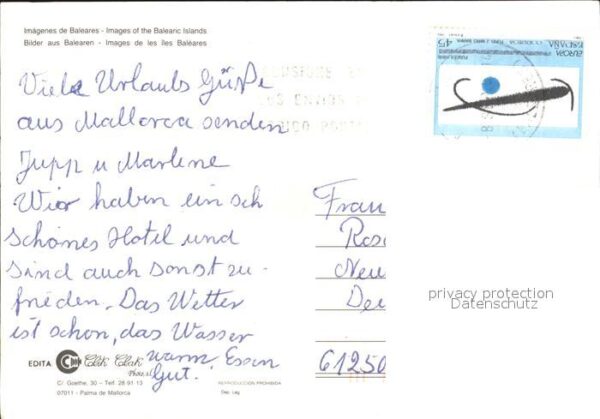 Imágenes de Baleares - Images of the Balearic Islands
Bilder aus Balearen - Images de les Îles Baléares
Viele Urlaubs Grüße
aus Mallorca senden
Jupp u Marlene
Wir haben ein sch
schönes Hotel und
sind auch sonst zu-
frieden. Das Wetter
ist schon, das Wasser
warm. Essen
Gut.
EUROPA
ESPAÑA
45
Fran
Ros
Neu
Deu
61250
privacy protection
Datenschutz
EDITA
Clik Clak
C/ Goethe, 30 - Telf. 28 91 13
07011 - Palma de Mallorca
REPRODUCCION PROHIBIDA
Dep. Leg.